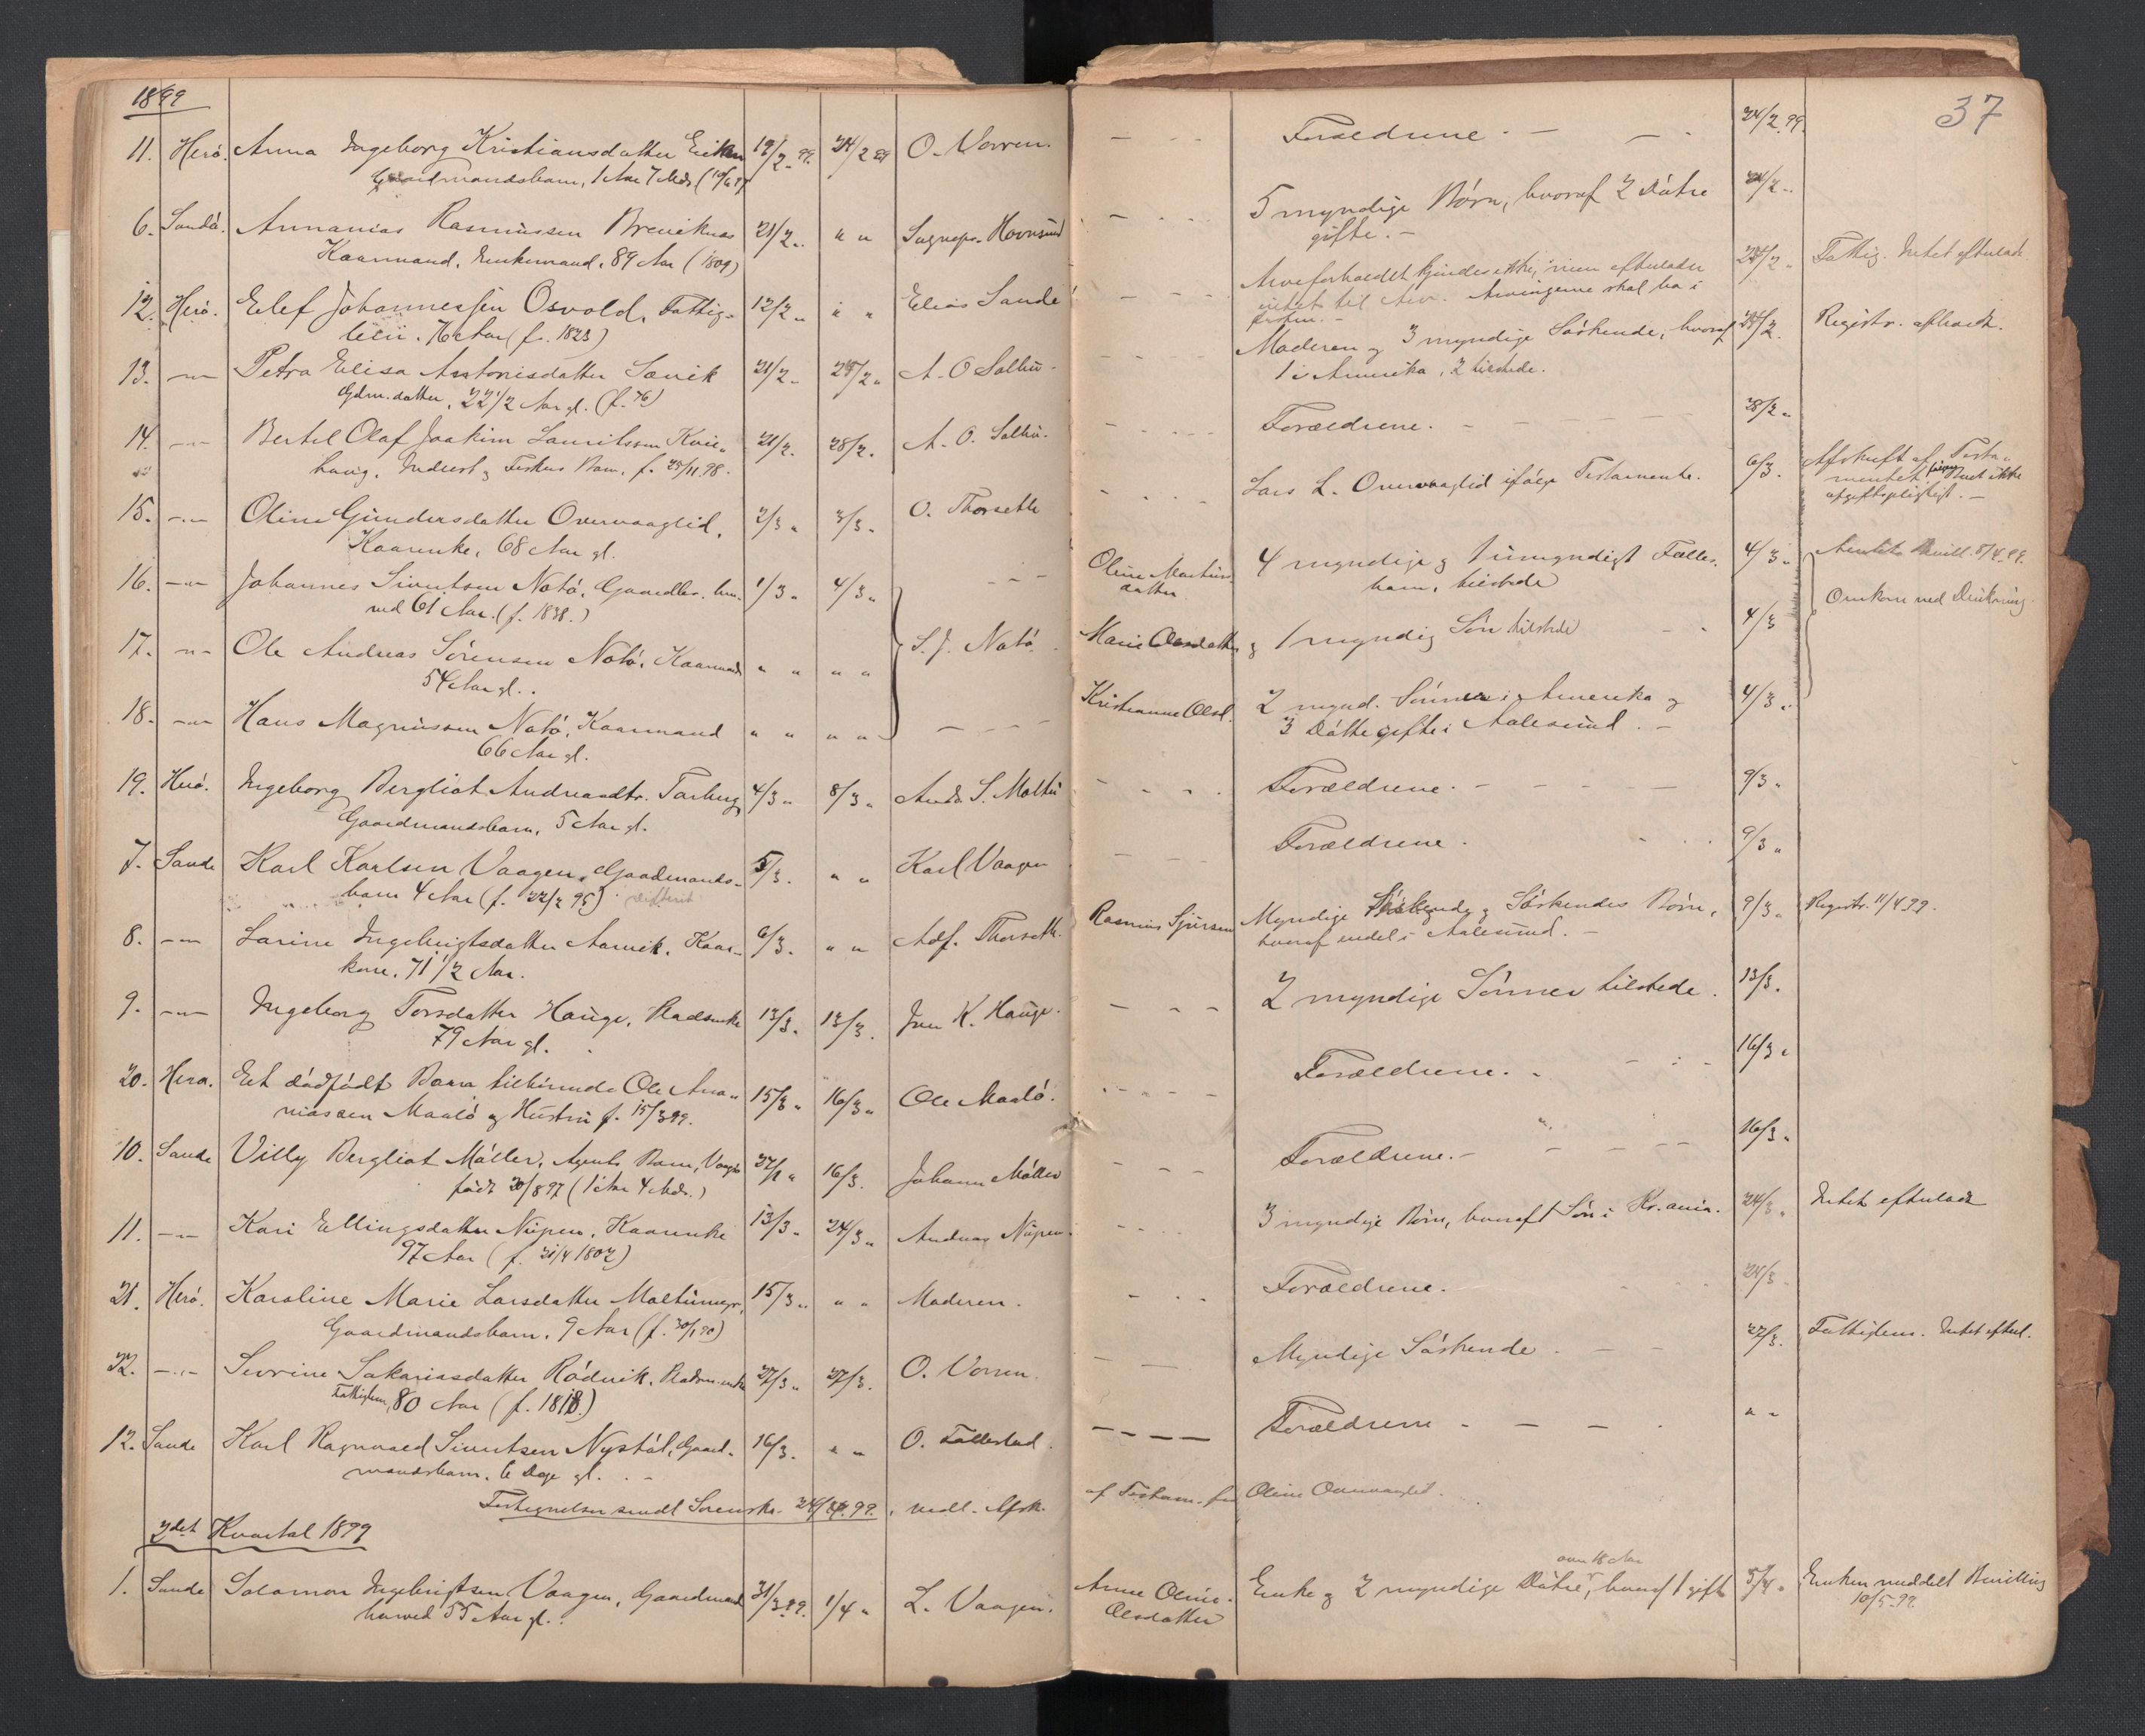 1899
37
11. Herö. Anna Ingeborg Kristiansdatter 19/2 99. 24/2 99 O. Vorren. - - - Forældrene. - - 24/2 99.
Gaardmandsbarn, 1 Aar 7 Mdr (
6. Sandö. Annanias Rasmussen Breviknes 21/2 „ „ „ - - - 5 myndige Börn, hvoraf 2 Dötre 24/2 „
Kaarmand, Enkemand, 89 Aar (1809) gifte. -
12. Herö. Elef Johannessen Osvold, Fattig- 12/2 „ „ „ Elias Sande - - - Arveforholdet kjendes ikke, men efterlader 24/2 „ Fattig. Intet efterladt
lem. 76 Aar (f. 1823) intet til Arv. Arvingerne skal bo i
13. -„- Petra Elisa Antonisdatter Sævik 21/2 „ A. O. Solhu - Moderen og 3 myndige Söskende, hvoraf Registr. afholdt.
Gdm.datter, 22 1/2 Aar gl. (f. 76) 1 i Amerika, 2 tilstede.
14. -„- Bertel Olaf Joakim Lauritssen Kvie- 21/2. 28/2. A. O. Solhu. - - - Forældrene. - - - 28/2 „
haug, Inderst og Fiskers Barn, f. 25/11.98.
15. -„- Oline Gundersdatter Overvaaglid, 2/3 „ 3/3 „ O. Thorseth - - - Lars L. Overvaaglid ifölge Testamente. 6/3. Afskrift af Testa-
Kaarenke, 68 Aar gl. mentet, Boet ikke
afgiftspligtigt. -
16. -„- Johannes Sivertsen Notö, Gaardbr. han- 1/3 „ 4/3 „ - - - Oline Martins 4 myndige og 1 umyndigt Fælles- 4/3 „ Bevill. 8/4 99.
ved 61 Aar. (f. 1838.) datter barn, tilstede Omkom ved Drukning
17. -„- Ole Andreas Sörensen Notö, Kaarmand „ „ „ „ S. J. Notö Marie Olsdatter og 1 myndig Sön tilstede - - 4/3
54 Aar gl..
18. -„- Hans Magnussen Notö, Kaarmand „ „ „ „ - - - Kristianne Olsd. 2 mynd. Sönner i Amerika og 4/3 „
66 Aar gl. 3 Döttre gifte i Aalesund. -
19. Herö. Ingeborg Bergliot Andreasdtr. Tarberg 4/3 „ 8/3 „ Ands S. Moltu - - - Forældrene. - - - 9/3 „
Gaardmandsbarn, 5 Aar gl.
7. Sande Karl Karlsen Vaagen, Gaardmands- 5/3. „ „ Karl Vaagen - - - Forældrene. 9/3 „
barn 4 Aar (f. 22/2 95) difterit
8. -„- Larine Ingebrigtsdatter Aarvik, Kaar- 6/3. „ „ Adf. Thorseth. Rasmus Sjursen Myndige Söskende og Söskendes Börn, 9/3 „ Registr. 11/4 99.
kone, 71 1/2 Aar. hvoraf endel i Aalesund. -
9. -„- Ingeborg Torsdatter Hauge, Pladsenke 13/3. 13/3. Iver K. Hauge. - - - 2 myndige Sönner tilstede. 13/3.
79 Aar gl.
20. Herö. Et dödfödt Barn tilhörende Ole Ana- 15/3 „ 16/3 „ Ole Maalö. - - - Forældrene. - 16/3 „
niassen Maalö og Hustru f. 15/3 99.
10. Sande Villy Bergliot Möller, Agents Barn, 16/3. Johann Möller - - - Forældrene. - - - 16/3 „
födt 20/8 97 (1 Aar 4 Mdr.)
11. -„- Kari Ellingsdatter Nupen, Kaarenke 13/3 „ 24/3 „ Andreas Nupen. - - 3 myndige Börn, hvoraf 1 Sön i Kr.ania. 24/3 „ Intet efterladt
97 Aar (f. 1802)
21. Herö. Karoline Marie Larsdatter Moltumyr, 15/3 „ „ „ Moderen. - - - Forældrene. 24/3
Gaardmandsbarn, 9 Aar (f. 30/1 90)
22. -„- Sevrine Sakariasdatter Rödvik, 27/3 „ 27/3. O. Vorren. - - Myndige Söskende. - - 27/3. Fattiglem. Intet efterl.
Fattiglem, 80 Aar (f. 1818.)
12. Sande Karl Ragnvald Sivertsen Nystöl, Gaard- 16/3. „ „ O. Follestad. - - - - Forældrene - - - „ „
mandsbarn, 6 Dage gl. . -
Fortegnelsen sendt Sorenskr. 99., vedl. Afsk. af Testam. fra Oline Overvaaglid.
2det Kvartal 1899
over 18 Aar
1. Sande Salomon Ingebrigtsen Vaagen, Gaardmand 31/3 99. 1/4 „ L. Vaagen. Anne Oline Enke og 2 myndige Dötre, hvoraf 1 gift 5/4 „ Enken meddelt Bevilling
henved 55 Aar gl.. Olsdatter 10/5 99.